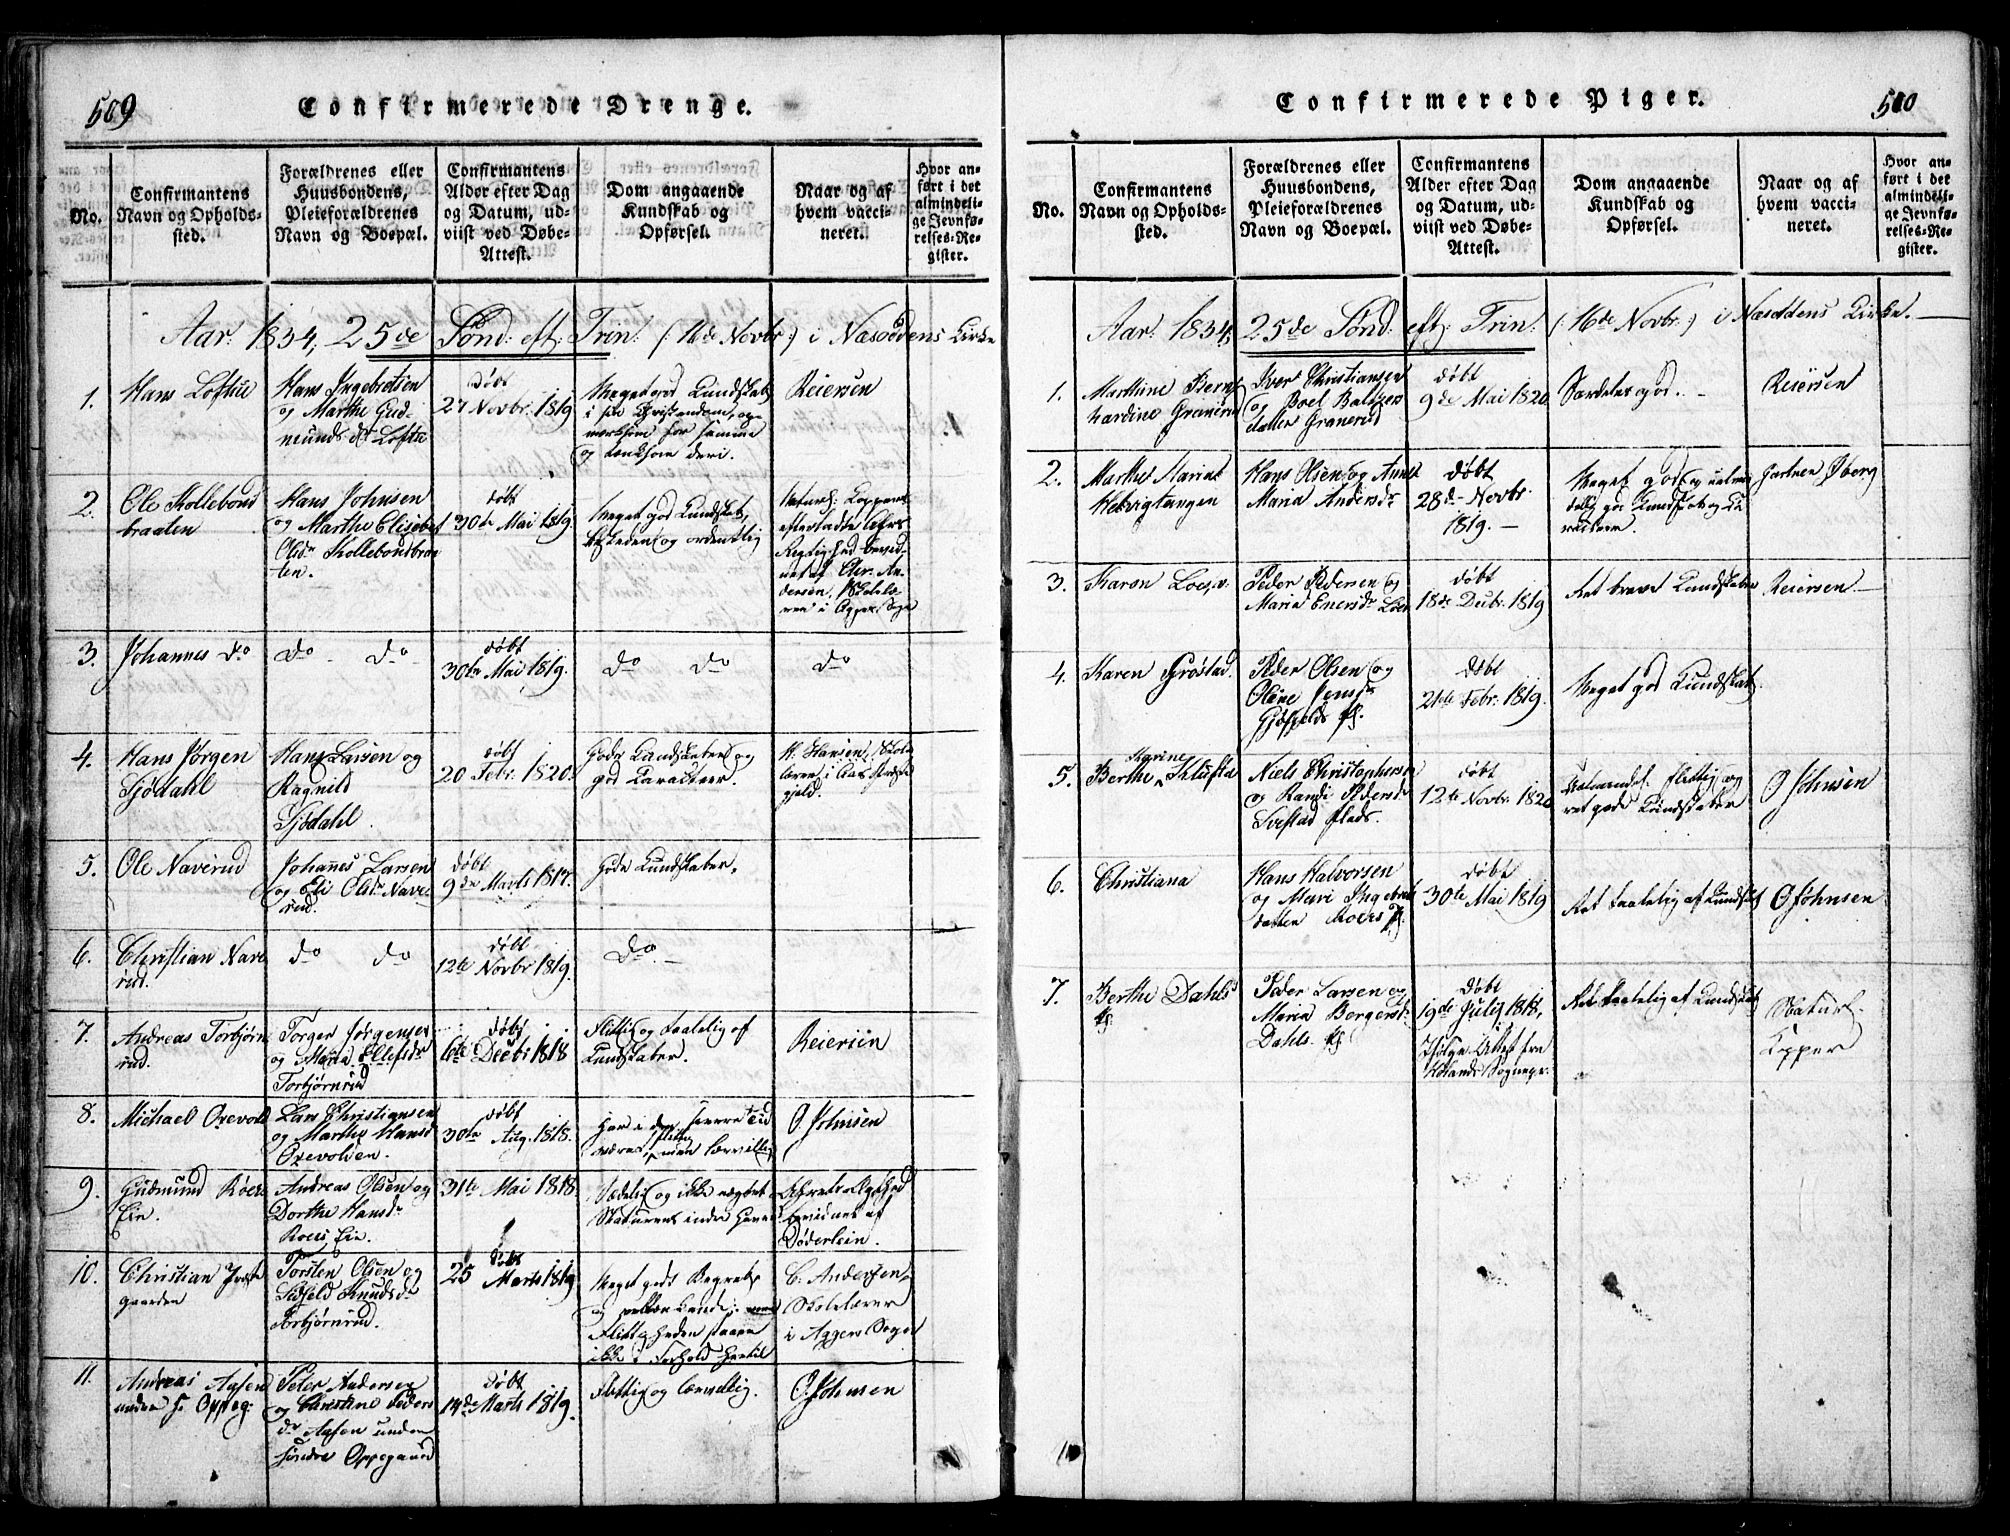 509
Confirmerede Drenge.
No.
Confirmantens
Navn og Opholds-
sted.
Forældrenes eller
Huusbondens,
Pleieforældrenes
Navn og Boepæl.
Confirmantens
Alder efter Dag
og Datum, ud-
viist ved Døbe-
Attest.
Dom angaaende
Kundskab og
Opførsel.
Naar og af
hvem vacci-
neret.
Hvor an-
ført i det
almindeli-
ge Jevnfø-
relses-Re-
gister.
Aar 1834, 25de Sønd: eft: Trin: (16de Novbr:) i Næsoddens Kirke
1.
Hans Loftu
Hans Ingebretsen
og Marthe Gud-
munds dr Loftu
Døbt
27 Novbr. 1819
Meget god Kundskab
i sin Christendom, op-
mærksom for samme
og tænksom deri.
Reiersen
2.
Ole Kollebond
braaten
Hans Johnsen
og Marthe Elisabet
Olsdr Kollebondbraa
ten.
døbt
30te Mai 1819.
Meget god Kundskab,
beskeden og ordentlig
Naturl: Kopper
efterladte Ars
Rigtighed bevid-
net af Chr. An-
dersen, Skolelæ
rer i Aggers Sogn
3.
Johannes do
do do
døbt
30te Mai 1819.
do do
do
4.
Hans Jørgen
Sjødahl
Hans Larsen og
Ragnild
Sjødahl.
døbt
20 Febr. 1820.
Gode Kundskaber og
god Caracteer.
H. Hansen, Skole
lærer i Aas Præste
gjeld.
5.
Ole Naverud
Johannes Larsen
og Eli Olsdr Nave
rud.
døbt
9de Marts 1817.
Gode Kundskaber.
6.
Christian Nave
rud.
do do
døbt
12te Novbr 1819.
do.
7.
Andreas Torbjørn
rud.
Torger Jørgensen
og Maria Ellefsdr
Torbjørnrud
døbt
6te Decbr 1818
Flittig og taalelig af
Kundskaber.
Reiersen
8.
Michael Orevold
Lars Christiansen
og Marthe Hansdr
Orevolden.
døbt
30te Aug. 1818.
Har i den senere Tid
været flittig, men lærvillig
O. Johnsen
9.
Gudmund Röers
Eie.
Andreas Olsen og
Dorthe Hansdr
Roers Eie.
31te Mai 1818.
Sædelig og ikke nægtet
Naturens indre Gaver
Attest
bevidnes af
Døderlein.
10.
Christian Præste
gaarden
Torsten Olsen og
Sidseld Knudsdr
Torbjørnrud.
døbt
25 Marts 1819
Meget godt Begreb
og Kunds:
Flittigheden staaer
ikke i Forhold hertil
C. Andersen,
Skolelærer
i Aggers Sogn
11.
Andreas Aasen
under S. Oppeg:
Peter Andersen
og Christine Peders
dr Aasen under
søndre Oppegaard
døbt
14de Marts 1819.
Flittig og lærvillig.
O. Johnsen
510
Confirmerede Piger.
No.
Confirmantens
Navn og Opholds-
sted.
Forældrenes eller
Huusbondens,
Pleieforældrenes
Navn og Boepæl.
Confirmantens
Alder efter Dag
og Datum, ud-
viist ved Døbe-
Attest.
Dom angaaende
Kundskab og
Opførsel.
Naar og af
hvem vacci-
neret.
Hvor an-
ført i det
almindeli-
ge Jevnfø-
relses-Re-
gister.
Aar 1834, 25de Sønd: eft: Trin: (16de Novbr:) i Næsoddens Kirke.
1.
Marthine Bern
hardine Granerud
Iver Christiansen
og Boel Baltzers
datter Granerud
døbt
9de Mai 1820
Særdeles god.
Reiersen
2.
Marthe Marie
Helvigtangen
Hans Olsen og Anne
Maria Andersdr
døbt
28de Novbr.
1819.
Meget god og
god Kundskab og
Gartner Øberg
3.
Karen Loes.
Peder Pedersen og
Maria Enersdr Loes
døbt
18de Decbr. 1819
Ret brave Kundskaber
Reiersen
4.
Karen Grøstad.
Peder Olsen og
Oline Jensdr
Gjøfjelds Pl.
døbt
21de Febr. 1819.
Meget god Kundskab.
5.
Berthe Karine Klufta
Niels Christophersen
og Randi Pedersdr
Svestad Plads.
døbt
12te Novbr. 1820
flittig og
ret gode Kundskaber
O Johnsen
6.
Christiana
Hans Halvorsen
og Mari Ingebrets
datter Roers Pl.
døbt
30te Mai 1819
Ret taalelig af Kundskab
O Johnsen
7.
Berthe Dahls
Pl.
Peder Larsen og
Maria Borgersdr
Dahls Pl.
døbt
19de Julij 1818,
Ifølge Attest fra
Hølands Sognepr.
Ret taalelig af Kundskab
Naturl.
Kopper